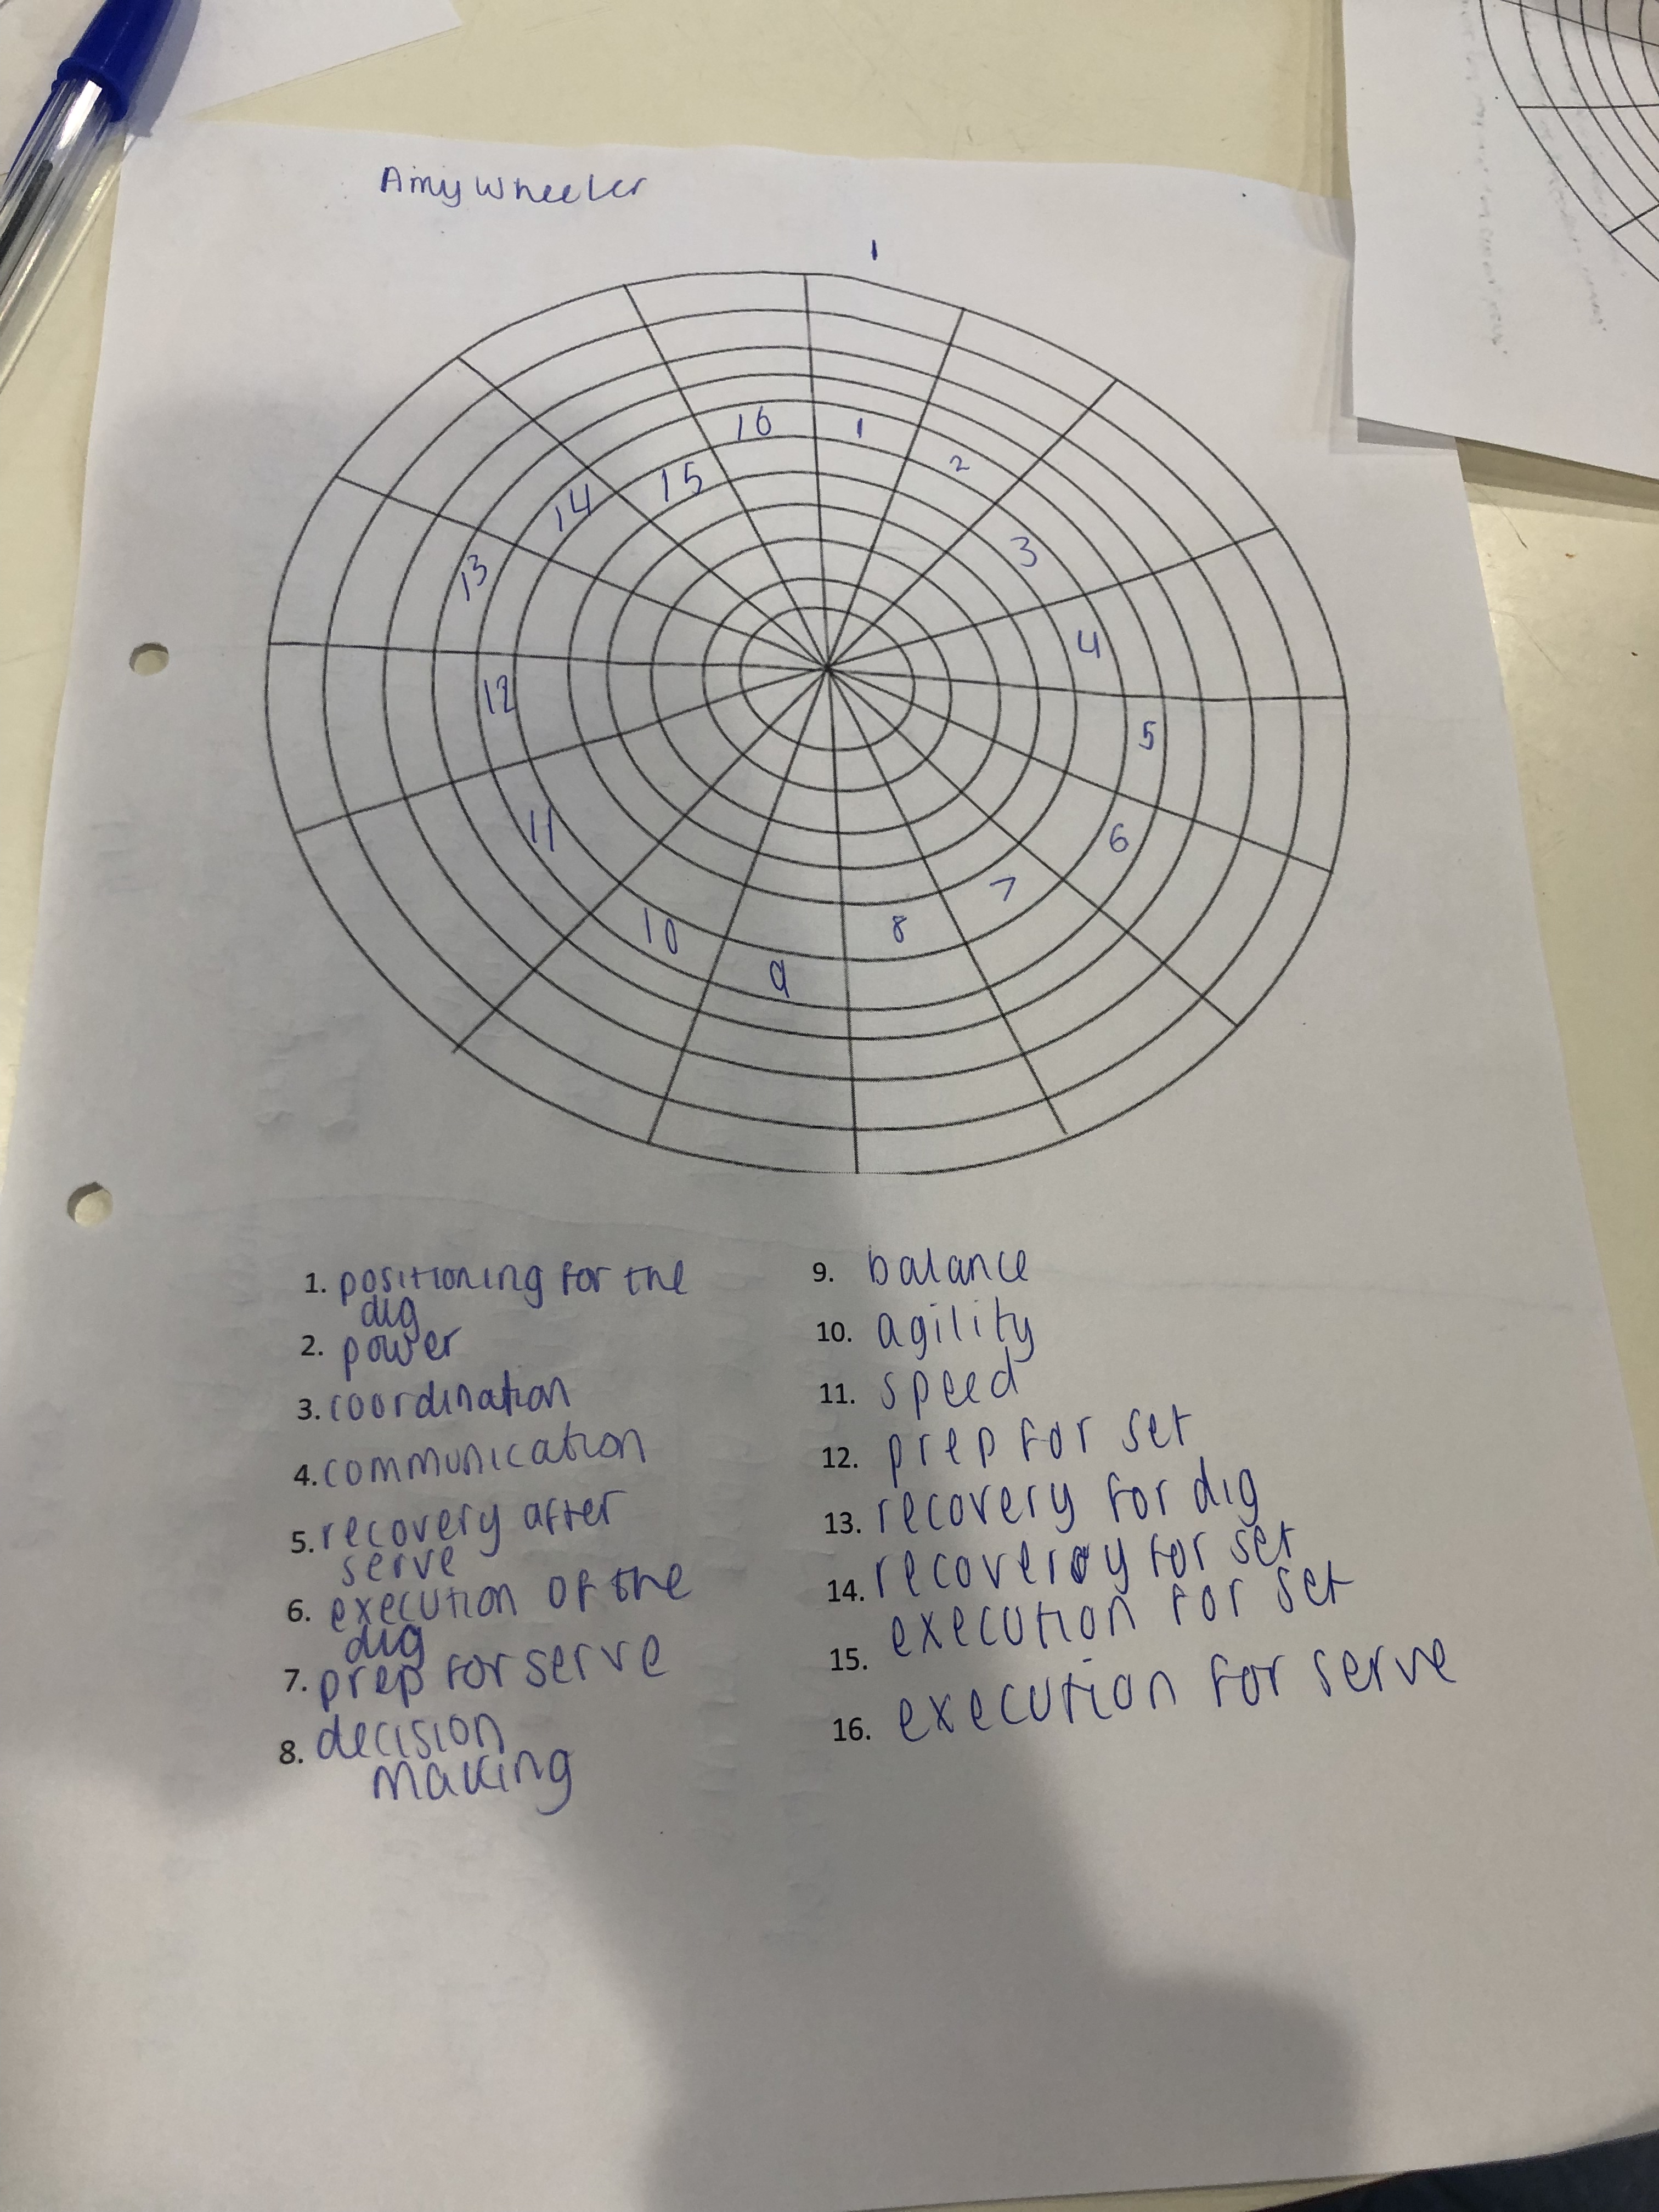 Amy Wheeler
1
16
1
2
15
14
3
13
4
12
5
11
6
7
10
8
9
1. positioning for the
dig
2. power
3. coordination
4. communication
5. recovery after
serve
6. execution of the
dig
7. prep for serve
8. decision
making
9. balance
10. agility
11. speed
12. prep for set
13. recovery for dig
14. recovery for set
15. execution for set
16. execution for serve